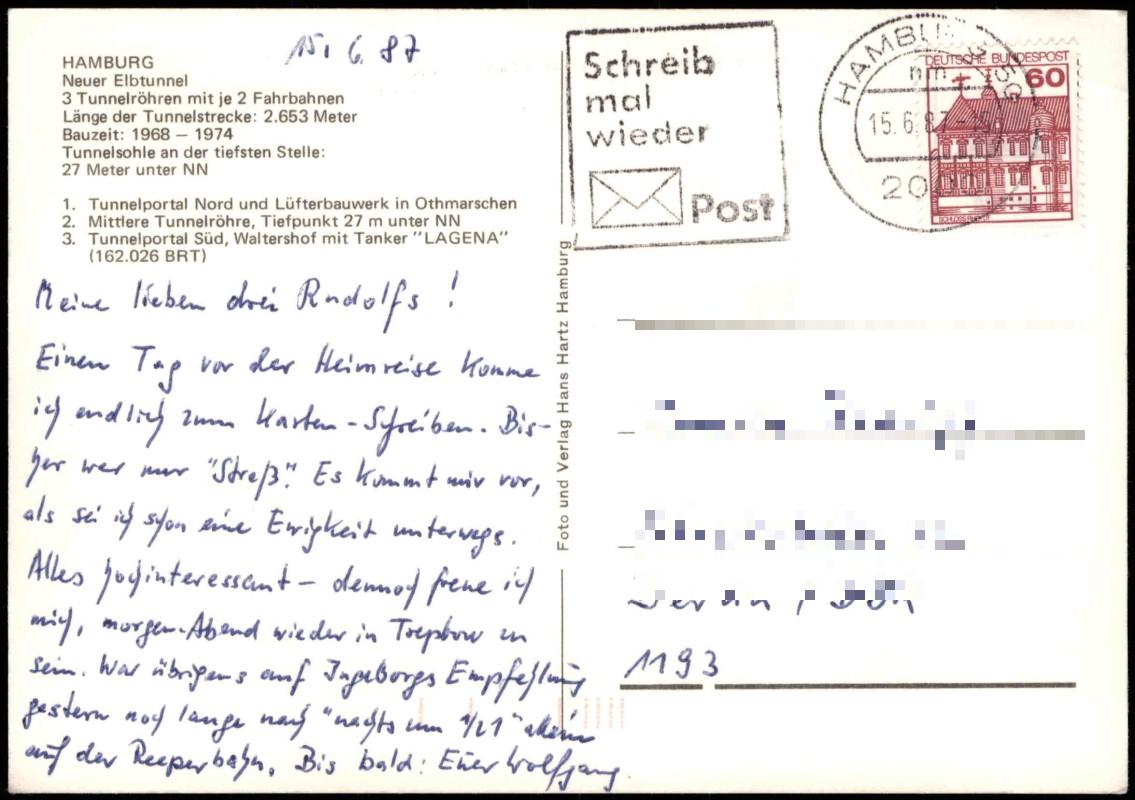 15. 6. 87
HAMBURG
Neuer Elbtunnel
3 Tunnelröhren mit je 2 Fahrbahnen
Länge der Tunnelstrecke: 2.653 Meter
Bauzeit: 1968 – 1974
Tunnelsohle an der tiefsten Stelle:
27 Meter unter NN
1. Tunnelportal Nord und Lüfterbauwerk in Othmarschen
2. Mittlere Tunnelröhre, Tiefpunkt 27 m unter NN
3. Tunnelportal Süd, Waltershof mit Tanker "LAGENA"
(162.026 BRT)
Meine lieben drei Rudolfs!
Einen Tag vor der Heimreise komme
ich endlich zum Karten-Schreiben. Bis-
her war nur "Streß". Es kommt mir vor,
als sei ich schon eine Ewigkeit unterwegs.
Alles hochinteressant – dennoch freue ich
mich, morgen Abend wieder in Treptow zu
sein. War übrigens auf Ingeborgs Empfehlung
gestern noch lange nach "nachts um 1/21" allein
auf der Reeperbahn. Bis bald: Euer Wolfgang.
Foto und Verlag Hans Hartz Hamburg
Schreib
mal
wieder
Post
HAMBU
15.6.87-15
DEUTSCHE BUNDESPOST
60
1193